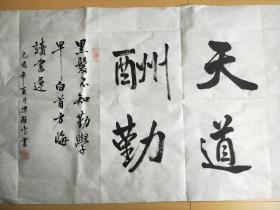 天道
酬勤
黑髮不知勤學
早白首方悔
讀書遲
己亥年酉月書